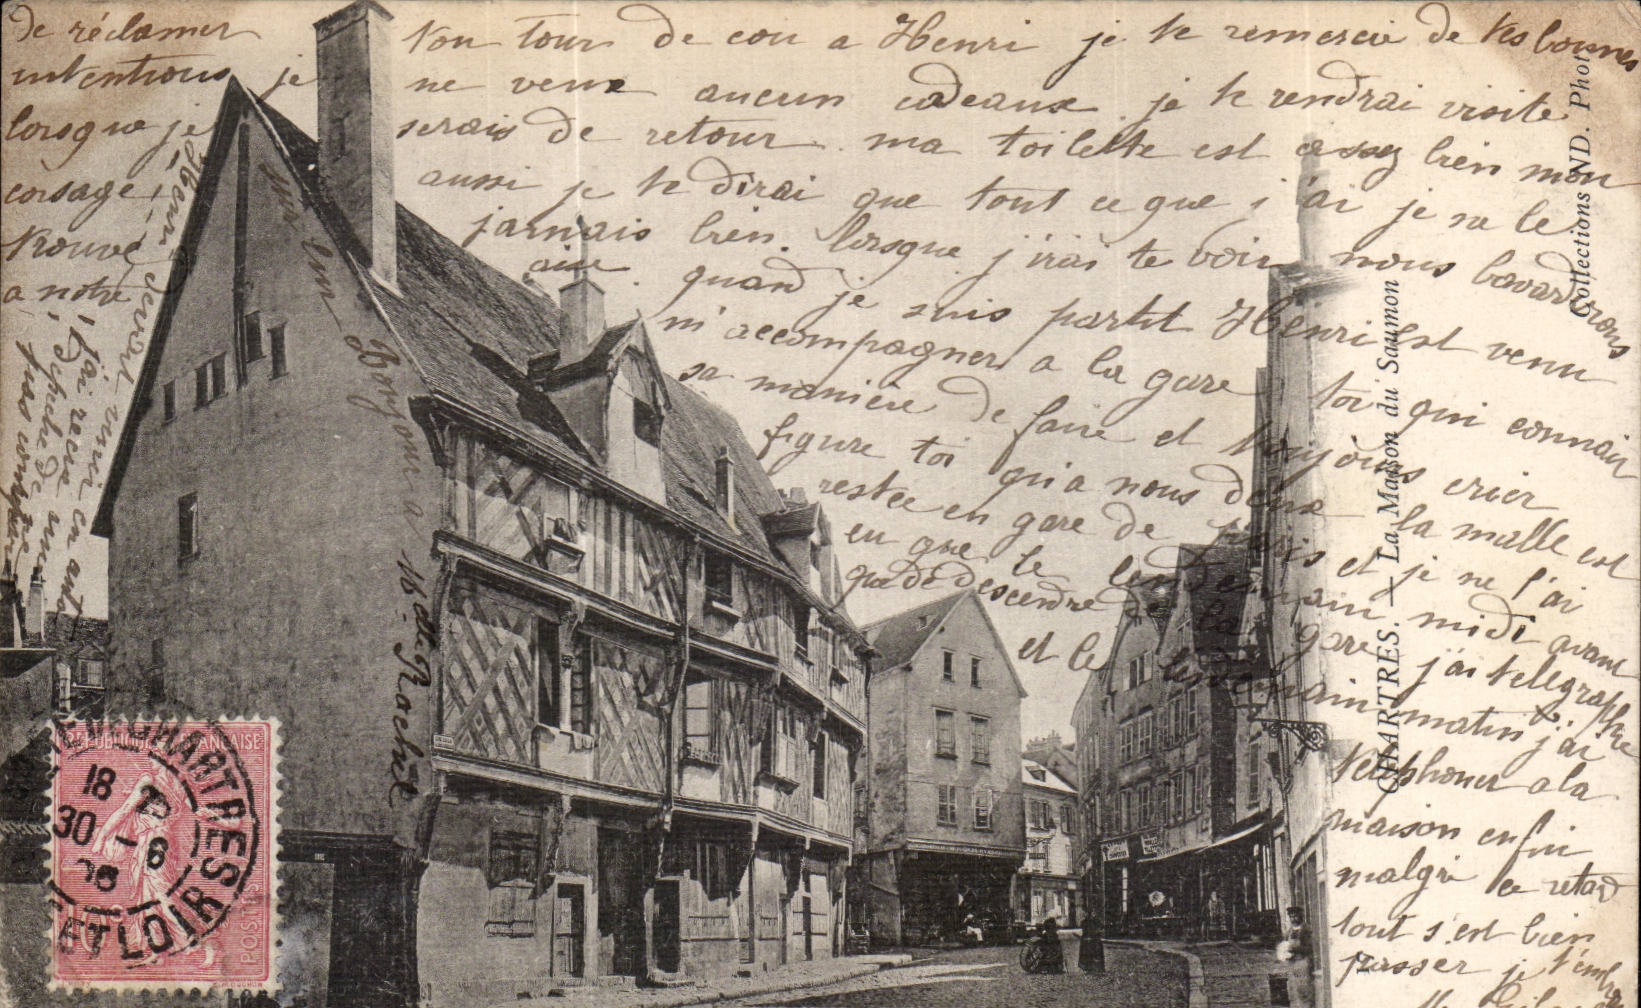 de réclamer ton tour de cou a Henri je te remercie de tes bonnes
intentions je ne veux aucun cadeaux je te rendrai visite
lorsque je serais de retour. ma toilette est assez bien mon
corsage aussi je te dirai que tout ce que j'ai je ne le
trouve jamais bien. lorsque j'irai te voir nous bavarderons
a notre aise quand je suis partit Henri est venu
m'accompagner a la gare toi qui connait
sa manière de faire et toujours crier
figure toi qu'a nous deux la malle est
restée en gare de Paris et je ne l'ai
eu que le lendemain midi avant
de descendre de la gare j'ai telegraphie
et le lendemain matin j'ai
telephoner a la
maison enfin
malgré ce retard
tout s'est bien
passer je t'embrasse
Henri devait venir
sur lui
bonjour a
j'ai recue en auto
dépêche de
CHARTRES. — La Maison du Saumon
Collections ND. Phot.
RÉPUBLIQUE FRANÇAISE
POSTES
CHARTRES
18
30 - 6
06
EURE ET LOIR